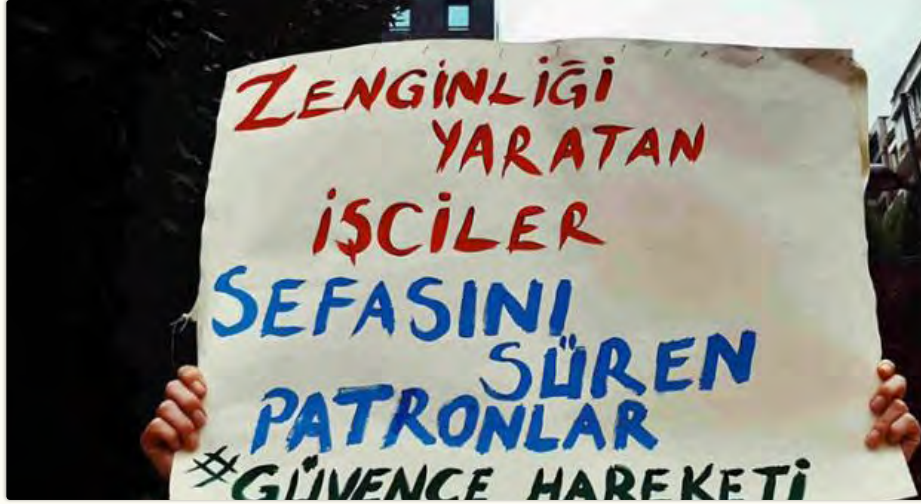 ZENGİNLİĞİ
YARATAN
İŞCİLER
SEFASINI
SÜREN
PATRONLAR
#GÜVENCE HAREKETİ